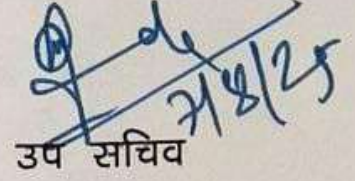 7/8/25
उप सचिव